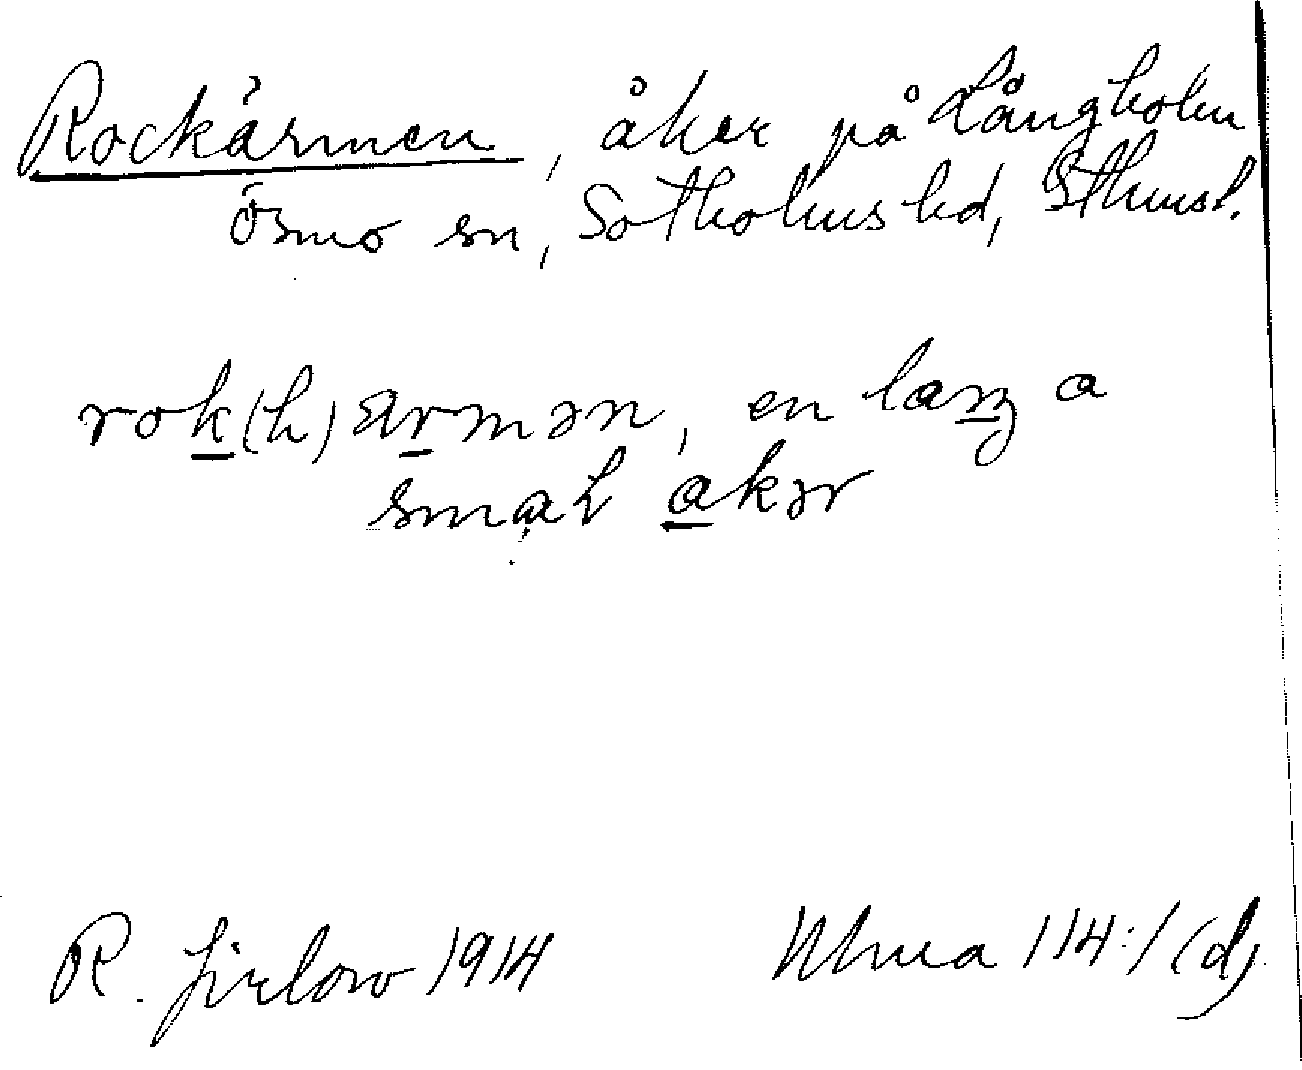 Rockärmen, åker på Långholm
Ösmo sn, Sotholms hd, Sthmsl.
rok(h)ærmən, en laŋ a
smaL akər
R. Jirlow 1914
Ulma 114:1(d)